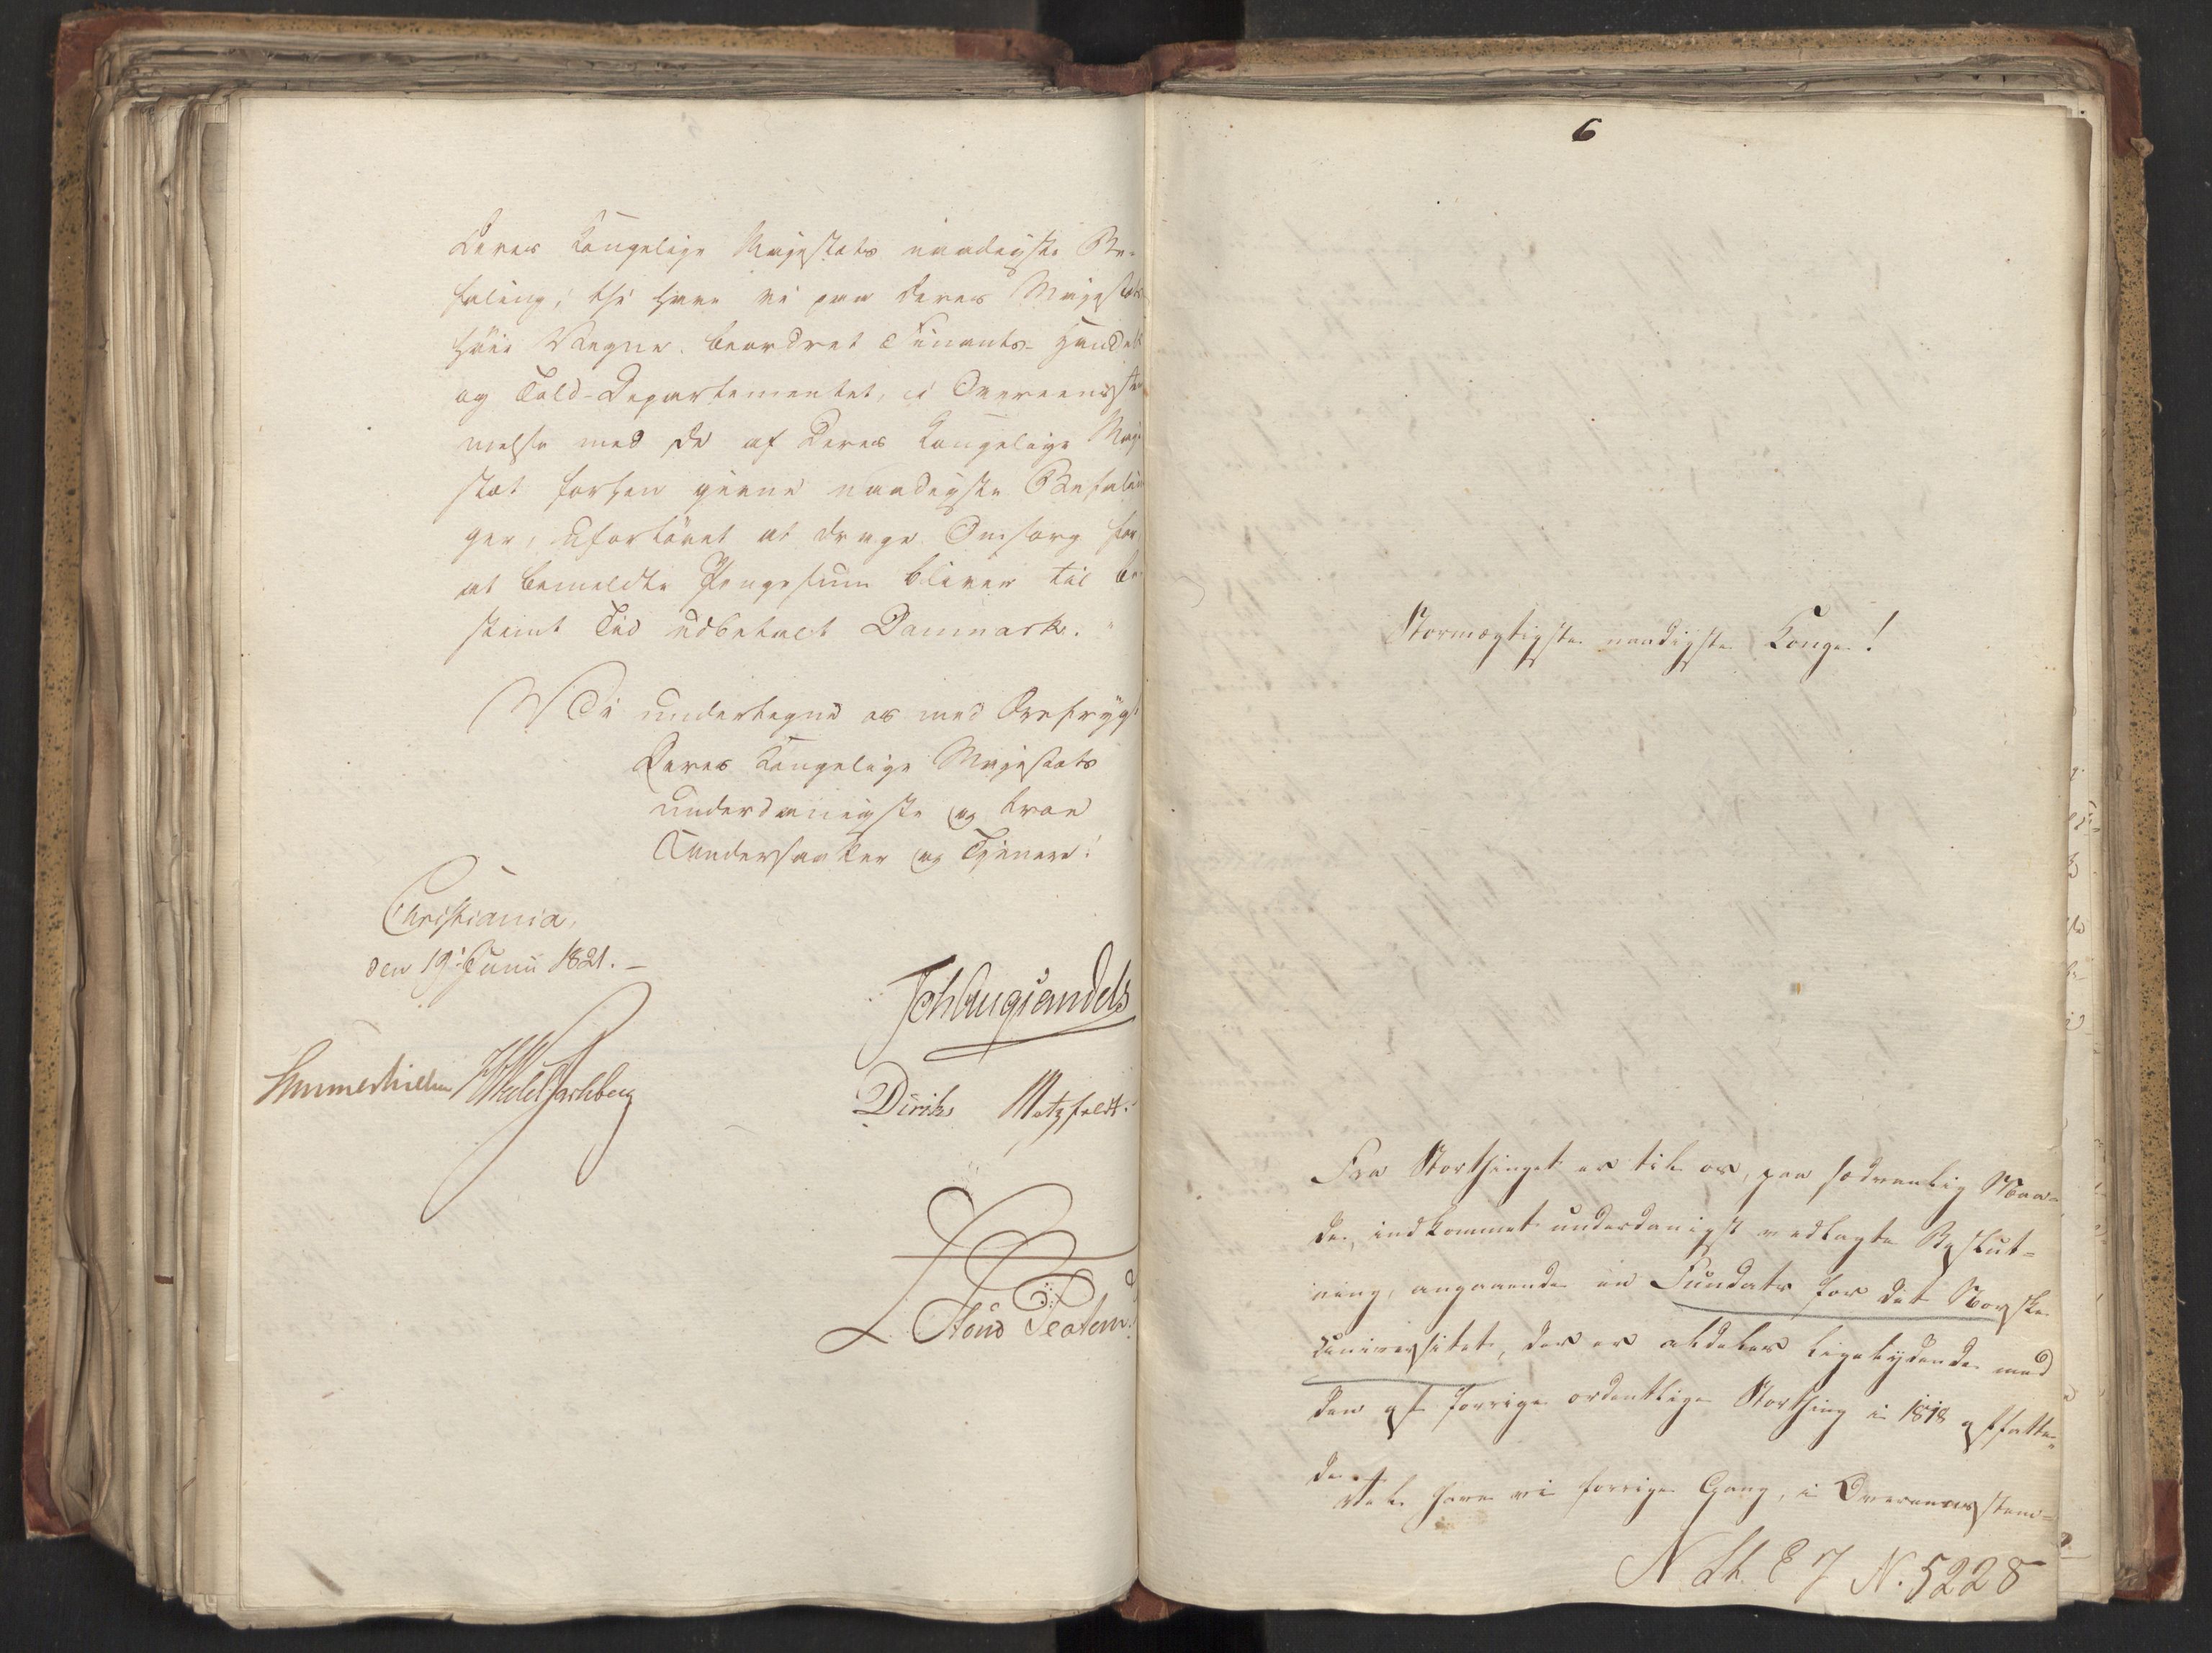 Deres Kongelige Majestæts naadigste Be-
faling; thi have vi paa Deres Majestæts
høie Vegne beordret Finants- Handels
og Told-Departementet, i Overeensstem
melse med de af Deres Kongelige Maje
stæt forhen givne naadigste Befalin
ger, ufortøvet at drage Omsorg for
at bemeldte Pengesum bliver til be
stemt Tid udbetalt Danmark.
Vi undertegne os med Ærefrygt
Deres Kongelige Majestæts
underdanigste og troe
Undersaatter og Tjenere!
Christiania,
den 19de Junii 1821. –
Joh Aug Sandels
Sommerhielm HWedel Jarlsberg
Diriks Motzfeldt.
6
Stormægtigste naadigste Konge!
Fra Storthinget er til os, paa sædvanlig Maa-
de, indkommet underdanigst vedlagte Beslut=
ning, angaaende en Fundats for det Norske
Universitet, der er aldeles ligelydende med
den af forrige ordentlige Storthing i 1818 affatte
de.
Vel have vi forrige Gang, i Overeensstem=
N. 5228